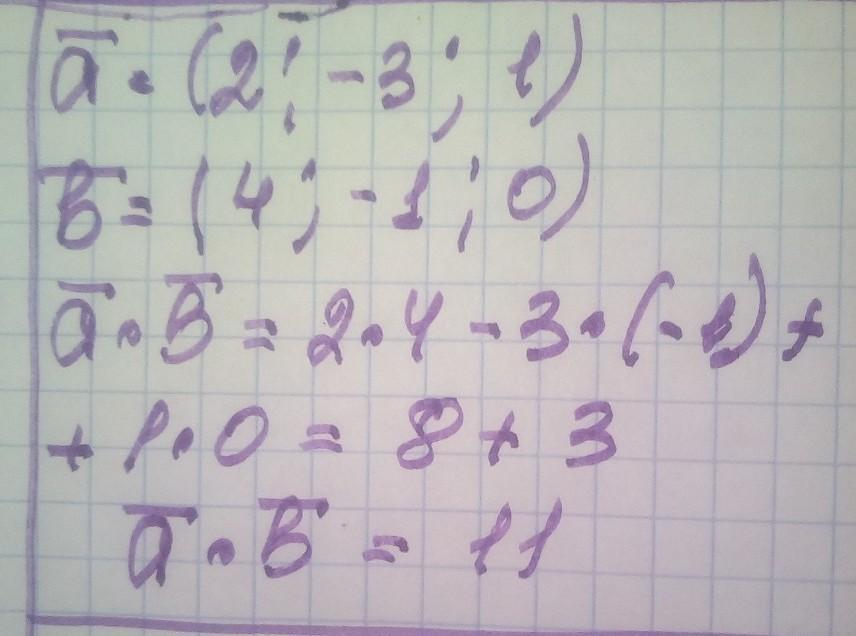 a̅ = (2; -3; 1)
b̅ = (4; -1; 0)
a̅ · b̅ = 2 · 4 - 3 · (-1) +
+ 1 · 0 = 8 + 3
a̅ · b̅ = 11